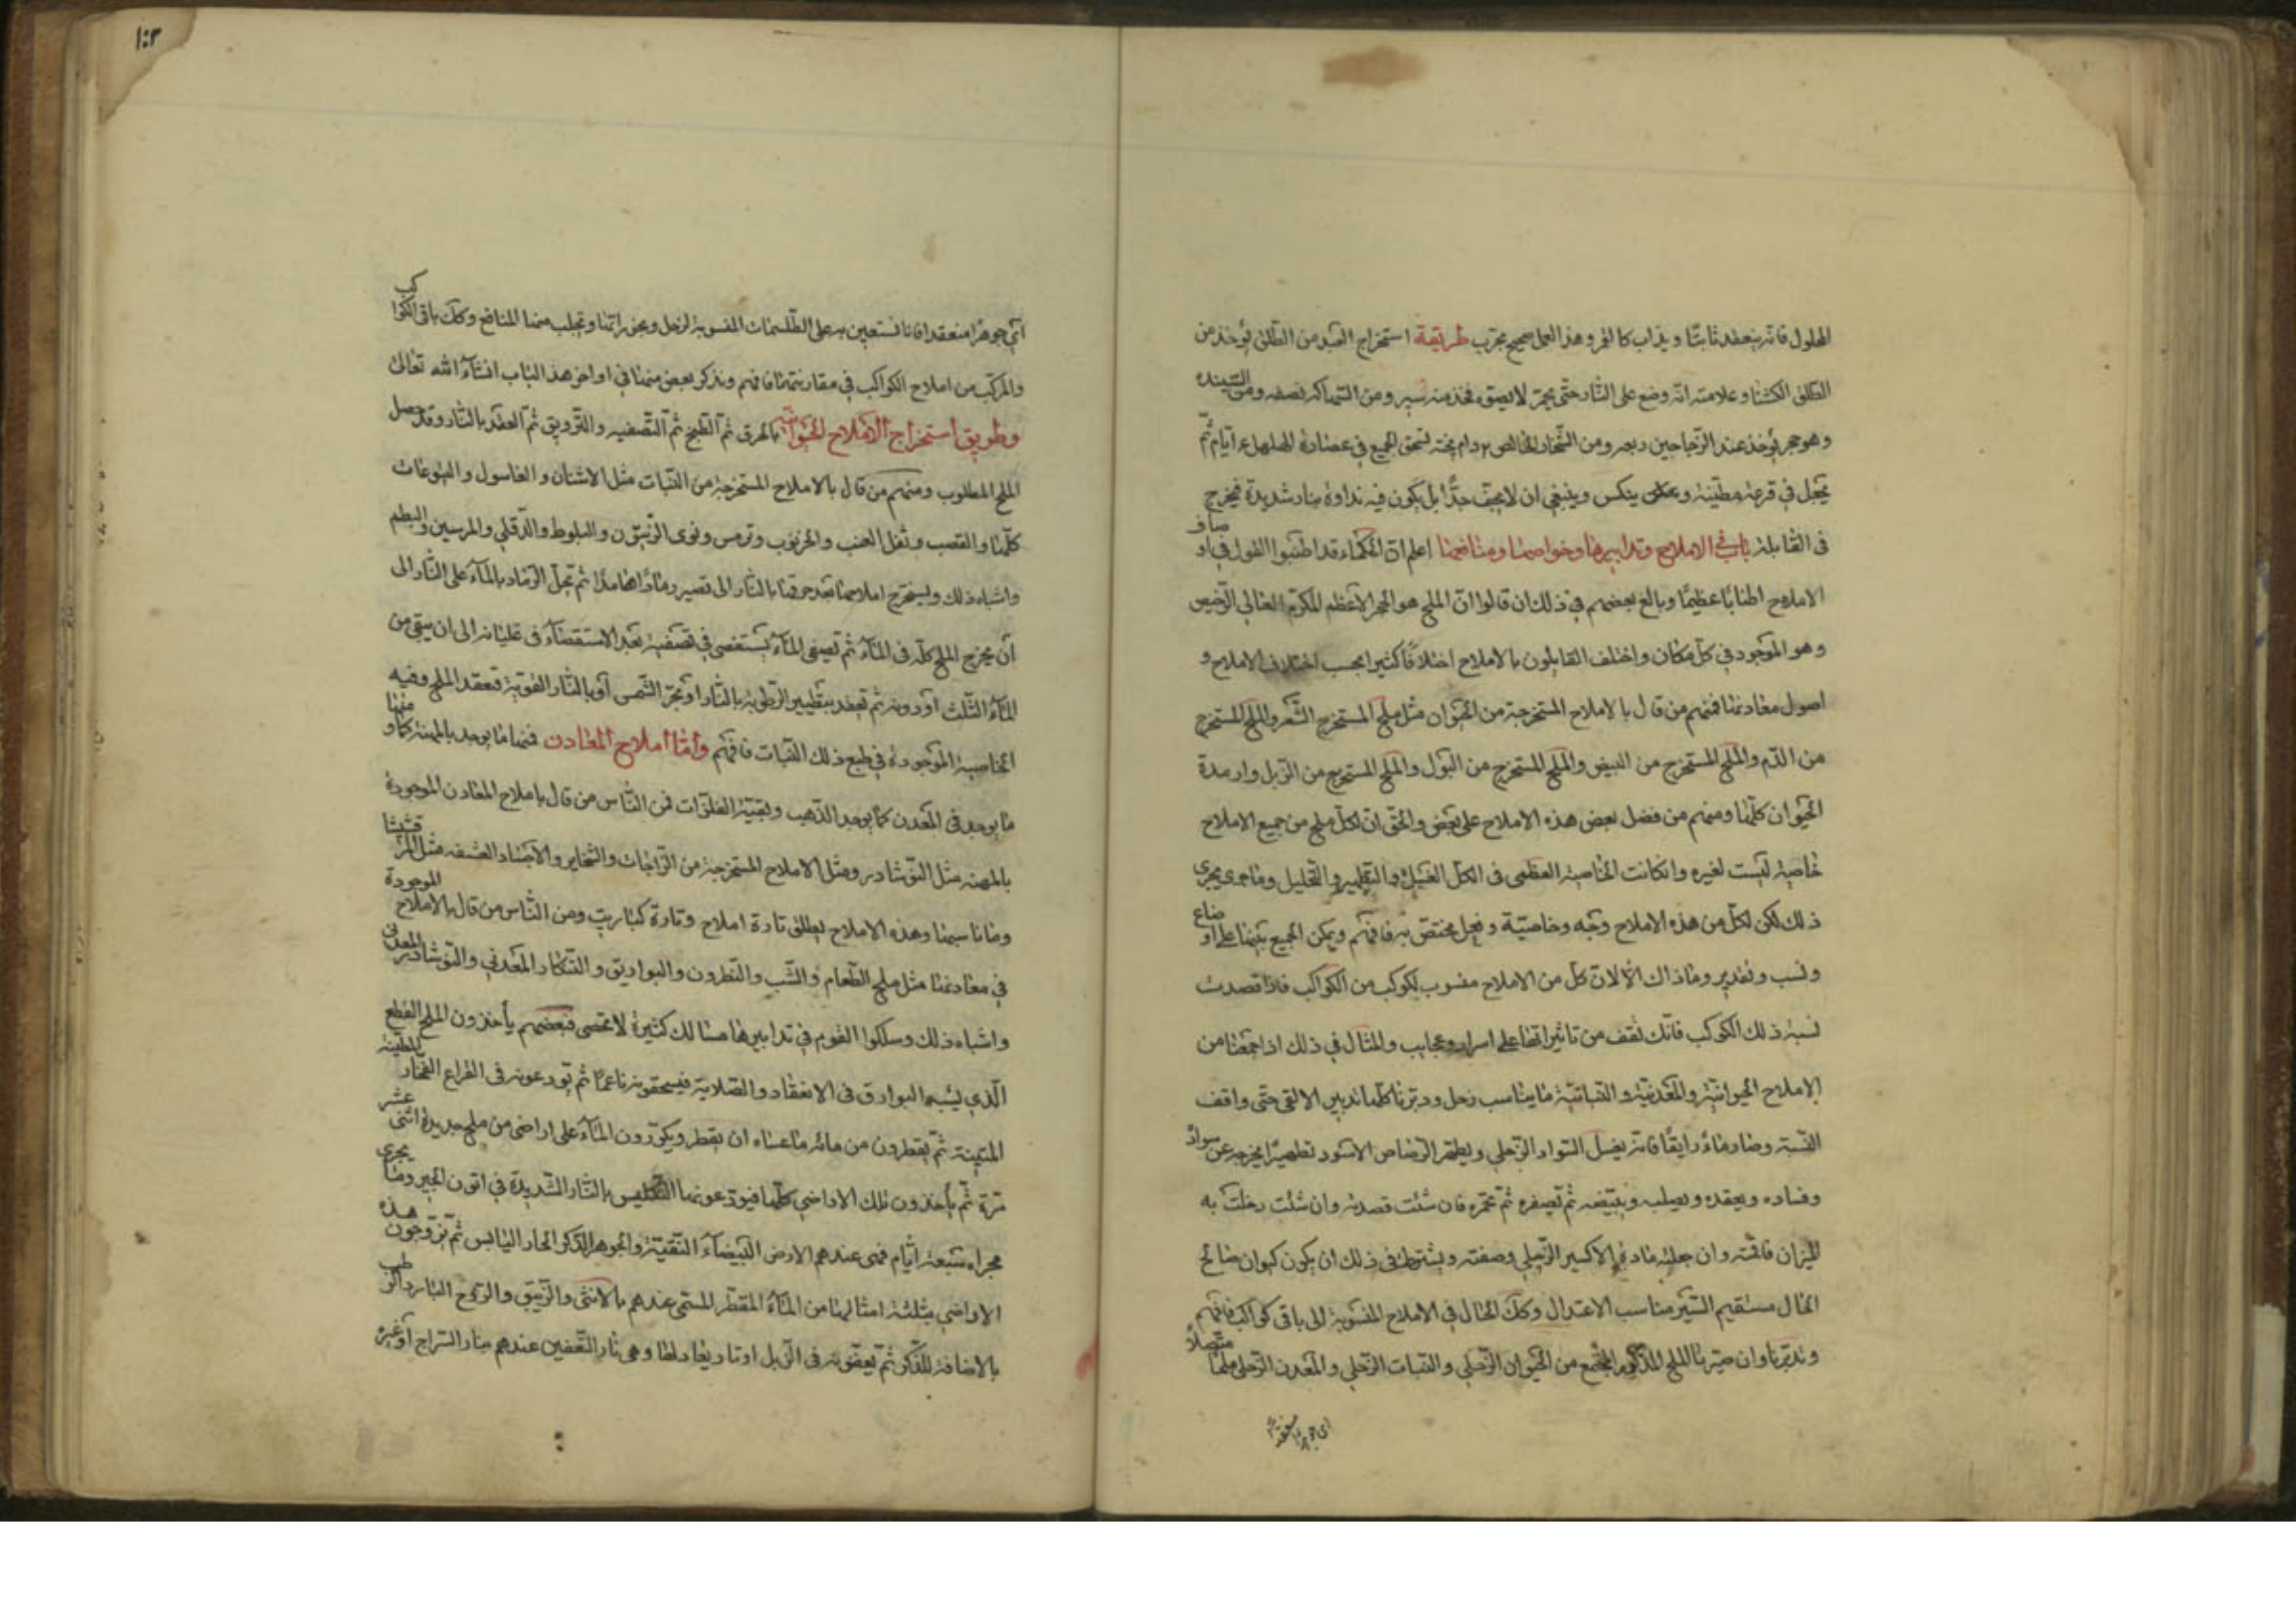 المحلول فانه ينعقد ثابتا ويذاب كالغر وهذا العمل صحيح مجرب طريقة استخراج العبد من الطلق يؤخذ من
الطلق وعلامته انه وضع على النار حتى يحمر لا يصيق فخذ منه سير ومن نصفه ومن
وهو حجر يؤخذ عند الزجاجين ربعه ومن الخالص دام يسحق الجميع في عصارة ايام ثم
يجعل في قرعة مطينة وينكس وينبغي ان لا يجف جدا بل يكون فيه نداوة بنار شديدة فيخرج
في القابلة باب في الاملاح وتدابيرها وخواصها ومنافعها اعلم ان الحكماء قد اطنبوا القول في اوصاف
الاملاح اطنابا عظيما وبالغ بعضهم في ذلك ان قالوا ان الملح هو الحجر الاعظم المكرم الغالي الرخيص
وهو الموجود في كل مكان واختلف القايلون بالاملاح اختلافا كثيرا بحسب اختلاف الاملاح و
اصول معادنها فمنهم من قال بالاملاح المستخرجة من الحيوان مثل ملح المستخرج الشعر والملح المستخرج
من الدم والملح المستخرج من البيض والملح المستخرج من البول والملح المستخرج من الزبل وارمدة
الحيوان كلها ومنهم من فضل بعض هذه الاملاح على بعض والحق ان لكل ملح من جميع الاملاح
خاصية ليست لغيره وانكانت الخاصية العظمى في الكل الغسل والتطهير والتحليل وما جرى مجرى
ذلك لكن لكل من هذه الاملاح وجه وخاصية وفعل مختص به فافهم ويمكن الجمع بينها على اوضاع
ونسب وتقدير وما ذاك الا لان كل من الاملاح منسوب لكوكب من الكواكب فاذا قصدت
نسبة ذلك الكوكب فانك تقف من تاثيراتها على اسرار وعجايب والمثال في ذلك اذا جمعنا من
الاملاح الحيوانية والمعدنية والنباتية ما يناسب زحل ودبرنا كلها تدبير الالقى حتى واقف
النسبة وصار ماء رايقا فانه يغسل السواد الزحلي ويطهر الرصاص الاسود تطهيرا يخرجه عن سواده
وفساده ويعقده ويصلبه ويبيضه ثم تصفره ثم تحمره فان شئت قصدته وان شئت دخلت به
الميزان فاقمته وان جعلته مادة الاكسير الزحلي وصفته ويشترط في ذلك ان يكون كيوان صالح
الحال مستقيم السير مناسب الاعتدال وكك الحال في الاملاح المنسوبة الى باقي كواكب فافهم
وتدبر وان صيرنا الملح المذكور المجتمع من الحيوان الزحلي والنبات الزحلي والمعدن الزحلي ملحا متصلا
اي جوهرا منعقدا
١٠٣
اي جوهرا منعقدا فانا نستعين به على الطلسمات المنسوبة لزحل وبحق راتها ونجلب منها المنافع وكك باقي الكواكب
والمركب من املاح الكواكب في مقارنتها فافهم ونذكر بعض منها في اواخر هذا الباب انشاء الله تعالى
وطريق استخراج الاملاح الحيوانية بالحرق ثم الطبخ ثم التصفيه والترويق ثم العقد بالنار وقد حصل
الملح المطلوب ومنهم من قال بالاملاح المستخرجة من النبات مثل الاشنان والغاسول واليتوعات
كلها والقصب وثفل العنب والخرنوب وترمس ونوى الزيتون والبلوط والدفلي والمرسين والبطم
واشباه ذلك ويستخرج املاحها بعد حرقها بالنار الى تصير رمادا هامدا ثم تحل الرماد بالماء على النار الى
ان يخرج الملح كله في الماء ثم تصفى الماء يستقصى في تصفيته بعد الاستقصاء في غليانه الى ان يبقى من
الماء الثلث او دونه ثم تعقد بتقطير الرطوبة بالنار او بحر الشمس او بالنار القوية فتعقد الملح وفيه
الخاصية الموجودة في طبع ذلك النبات فافهم واما املاح المعادن فمنها ما يوجد بالمهنة كما ومنها
ما يوجد في المعدن كما يوجد الذهب وبقية الفلزات فمن الناس من قال باملاح المعادن الموجودة
بالمهنة مثل النوشادر ومثل الاملاح المستخرجة من الزاجات والاجساد مثل المرقشيثا
وما ناسبها وهذه الاملاح يطلق تارة املاح وتارة كباريت ومن الناس من قال بالاملاح الموجودة
في معادنها مثل ملح الطعام والشب والنطرون والبواريق والتنكار المعدني والنوشادر المعدني
واشباه ذلك وسلكوا القوم في تدابيرها مسالك كثيرة لا تحصى فبعضهم يأخذون الملح القطع
الذي يشبه البوارق في الانعقاد والصلابة فيسحقونه ناعما ثم يودعونه في القراع الفخار المطينة
المتينة ثم يقطرون من مائه ما عساه ان يقطر ويكررون الماء على اراضى من ملح جديدة اثنى عشر
مرة ثم يأخذون تلك الاراضي كلها فيودعونها التكليس بالنار الشديدة في اتون الجير وما يجري
مجراه سبعة ايام فهى عندهم الارض البيضاء النقية والجوهر الذكر الحار اليابس ثم يزوجون هذه
الاراضي بثلثة امثالها من الماء المقطر المسمى عندهم بالانثى والزيبق والروح البارد الرطب
بالاضافة للذكر ثم يعفونه في الزبل او نار يعادلها وهي نار التعفين عندهم بنار السراج او غيره